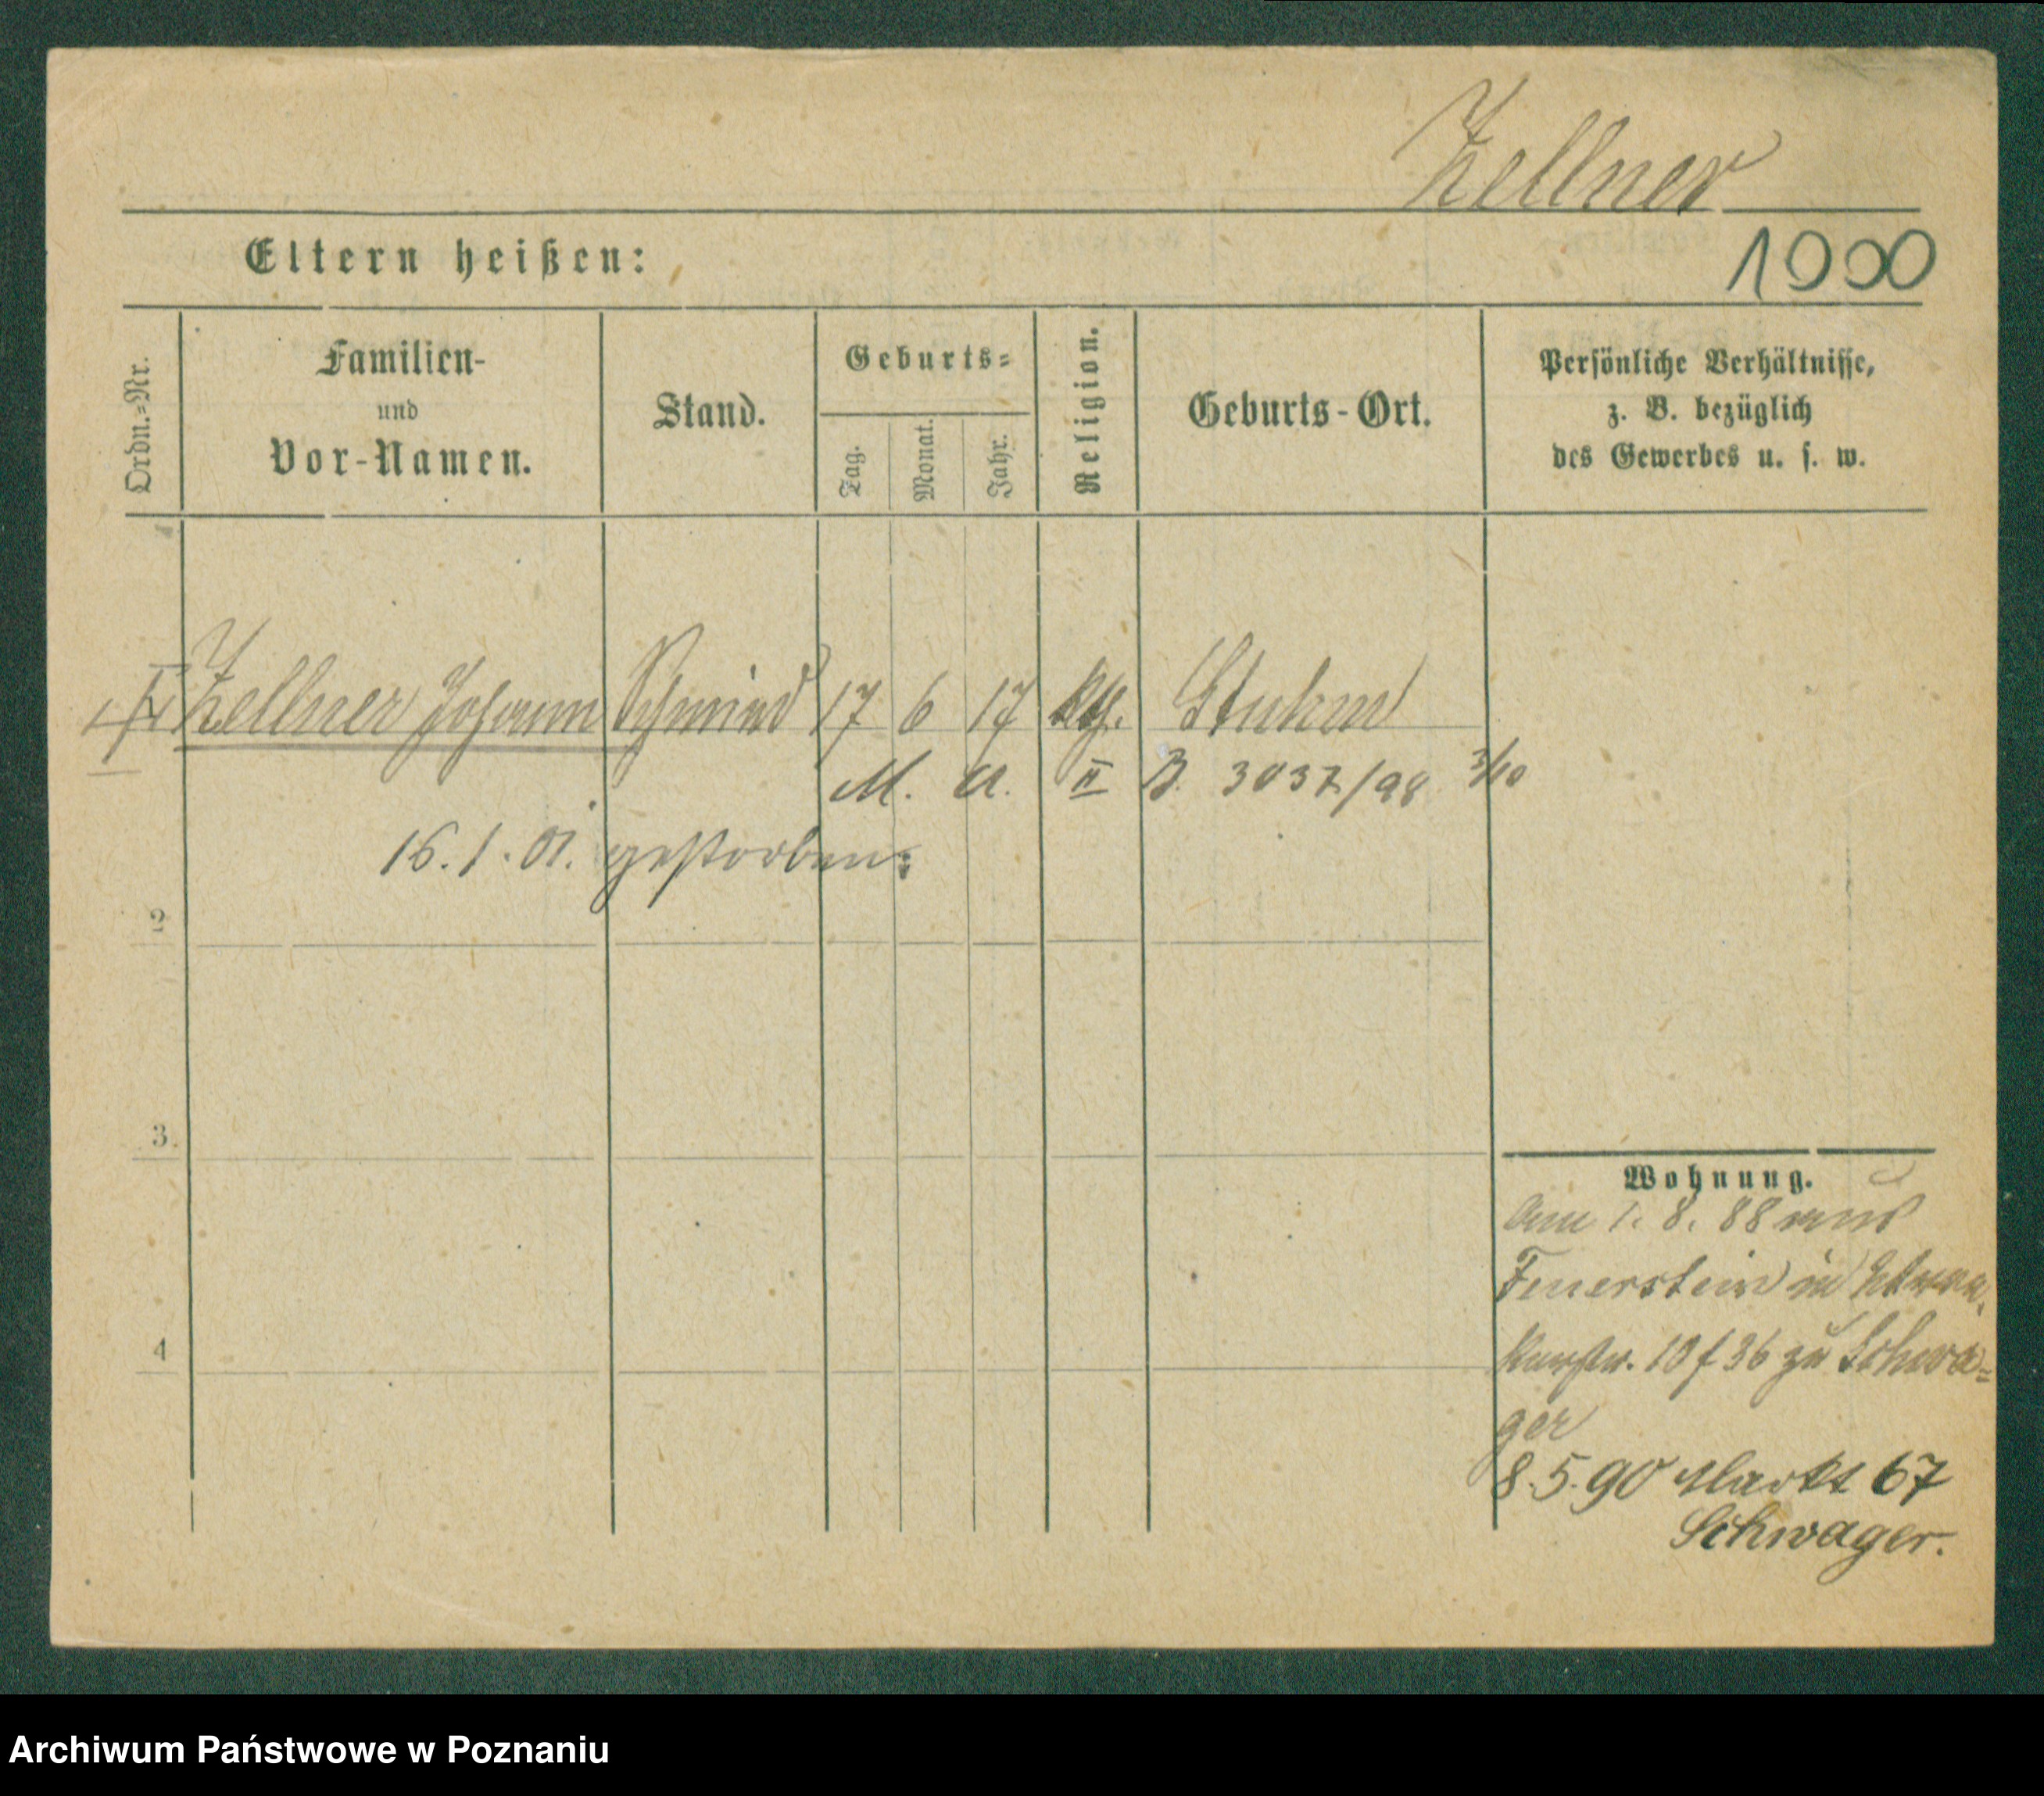 Zellner
1000
Eltern heißen:
Ordn.=Nr.
Familien-
und
Vor-Namen.
Stand.
Geburts=
Tag.
Monat.
Jahr.
Religion.
Geburts-Ort.
Persönliche Verhältnisse,
z. B. bezüglich
des Gewerbes u. s. w.
Zellner Johann Schmied 17 6 17 kth. Stuhm
M. A. II B. 3037/98 3/10
16.1.01. gestorben.
2
3
4
Wohnung.
Am 1. 8. 88 aus
Feuerstein in
10 f 36 zu Schwa=
ger
8.5.90 Markt 67
Schwager.
Archiwum Państwowe w Poznaniu